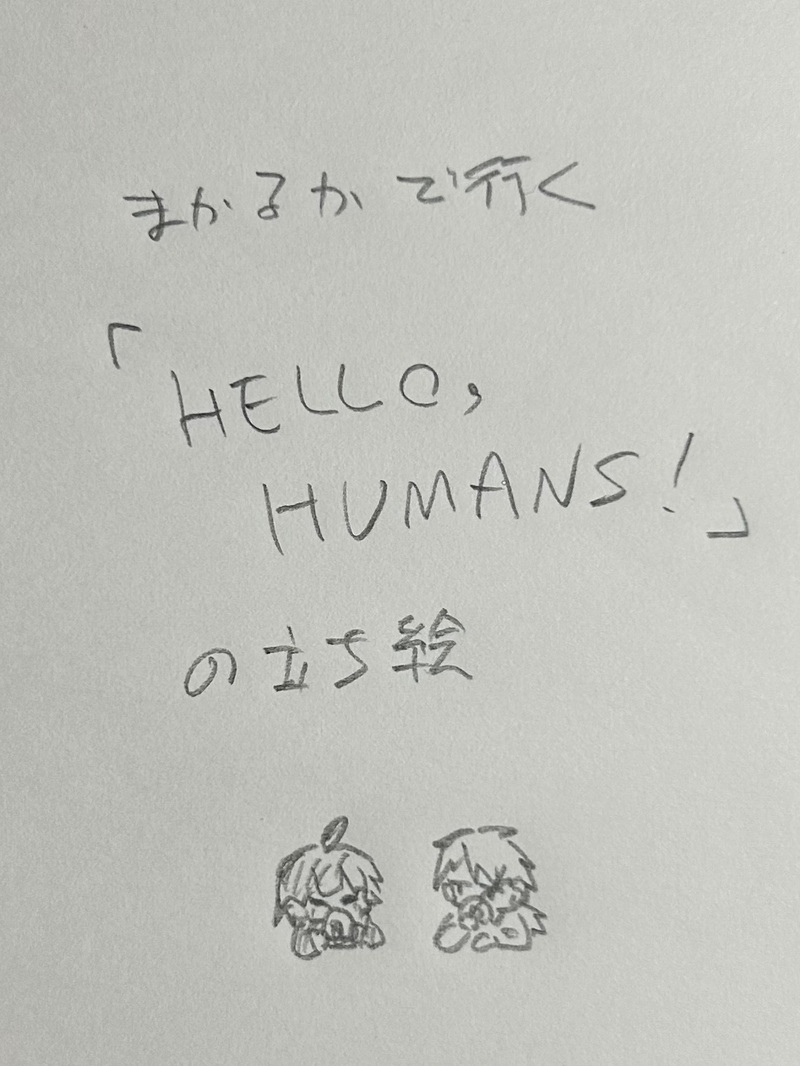 まかるかで行く
「HELLO,
HUMANS!」
の立ち絵